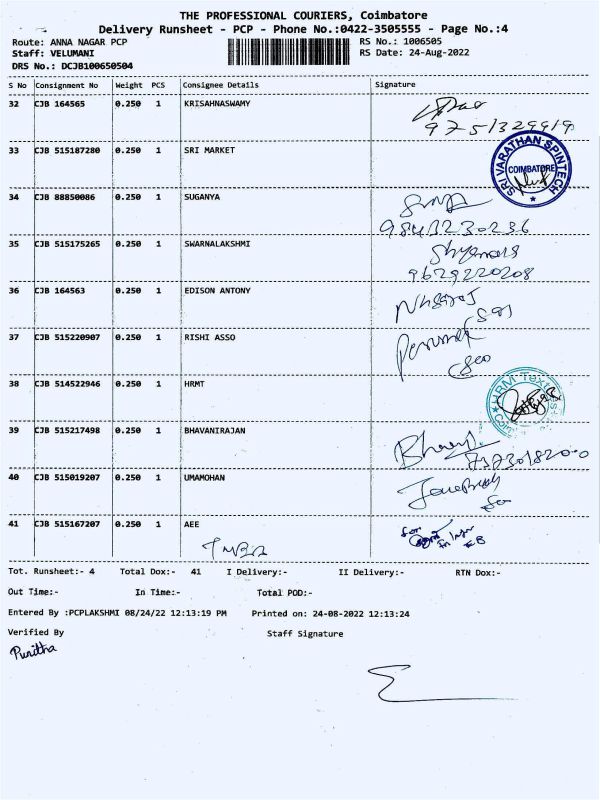 THE PROFESSIONAL COURIERS, Coimbatore
Delivery Runsheet - PCP - Phone No.:0422-3505555 - Page No.:4
Route: ANNA NAGAR PCP RS No.: 1006505
Staff: VELUMANI RS Date: 24-Aug-2022
DRS No.: DCJB100650504
S No Consignment No Weight PCS Consignee Details Signature
32 CJB 164565 0.250 1 KRISAHNASWAMY
9751329919
33 CJB 515187280 0.250 1 SRI MARKET
SRI VARATHAN SPINTECH
COIMBATORE
34 CJB 88850086 0.250 1 SUGANYA
35 CJB 515175265 0.250 1 SWARNALAKSHMI
9629220208
36 CJB 164563 0.250 1 EDISON ANTONY
37 CJB 515220907 0.250 1 RISHI ASSO
38 CJB 514522946 0.250 1 HRMT
HRM
39 CJB 515217498 0.250 1 BHAVANIRAJAN
40 CJB 515019207 0.250 1 UMAMOHAN
41 CJB 515167207 0.250 1 AEE
Tot. Runsheet:- 4 Total Dox:- 41 I Delivery:- II Delivery:- RTN Dox:-
Out Time:- In Time:- Total POD:-
Entered By :PCPLAKSHMI 08/24/22 12:13:19 PM Printed on: 24-08-2022 12:13:24
Verified By Staff Signature
Punitha